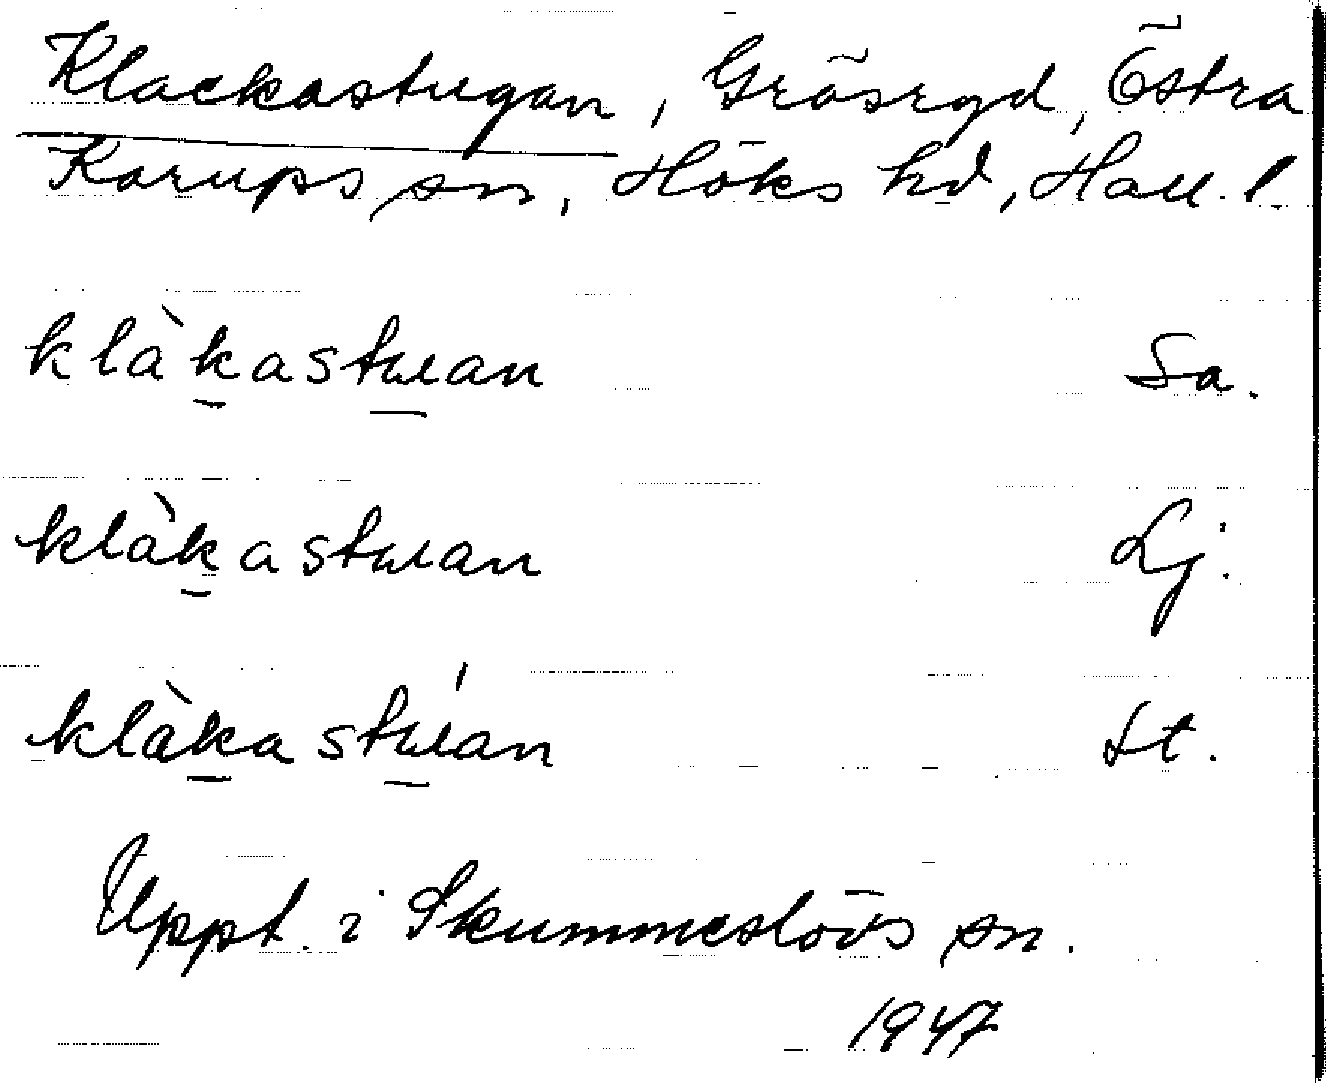 Klackastugan, Gräsryd, Östra
Karups sn, Höks hd, Hall. l.
klàkastuan Sa.
klàkastuan Lj.
klàkastúan St.
Uppt. i Skummeslövs sn.
1947